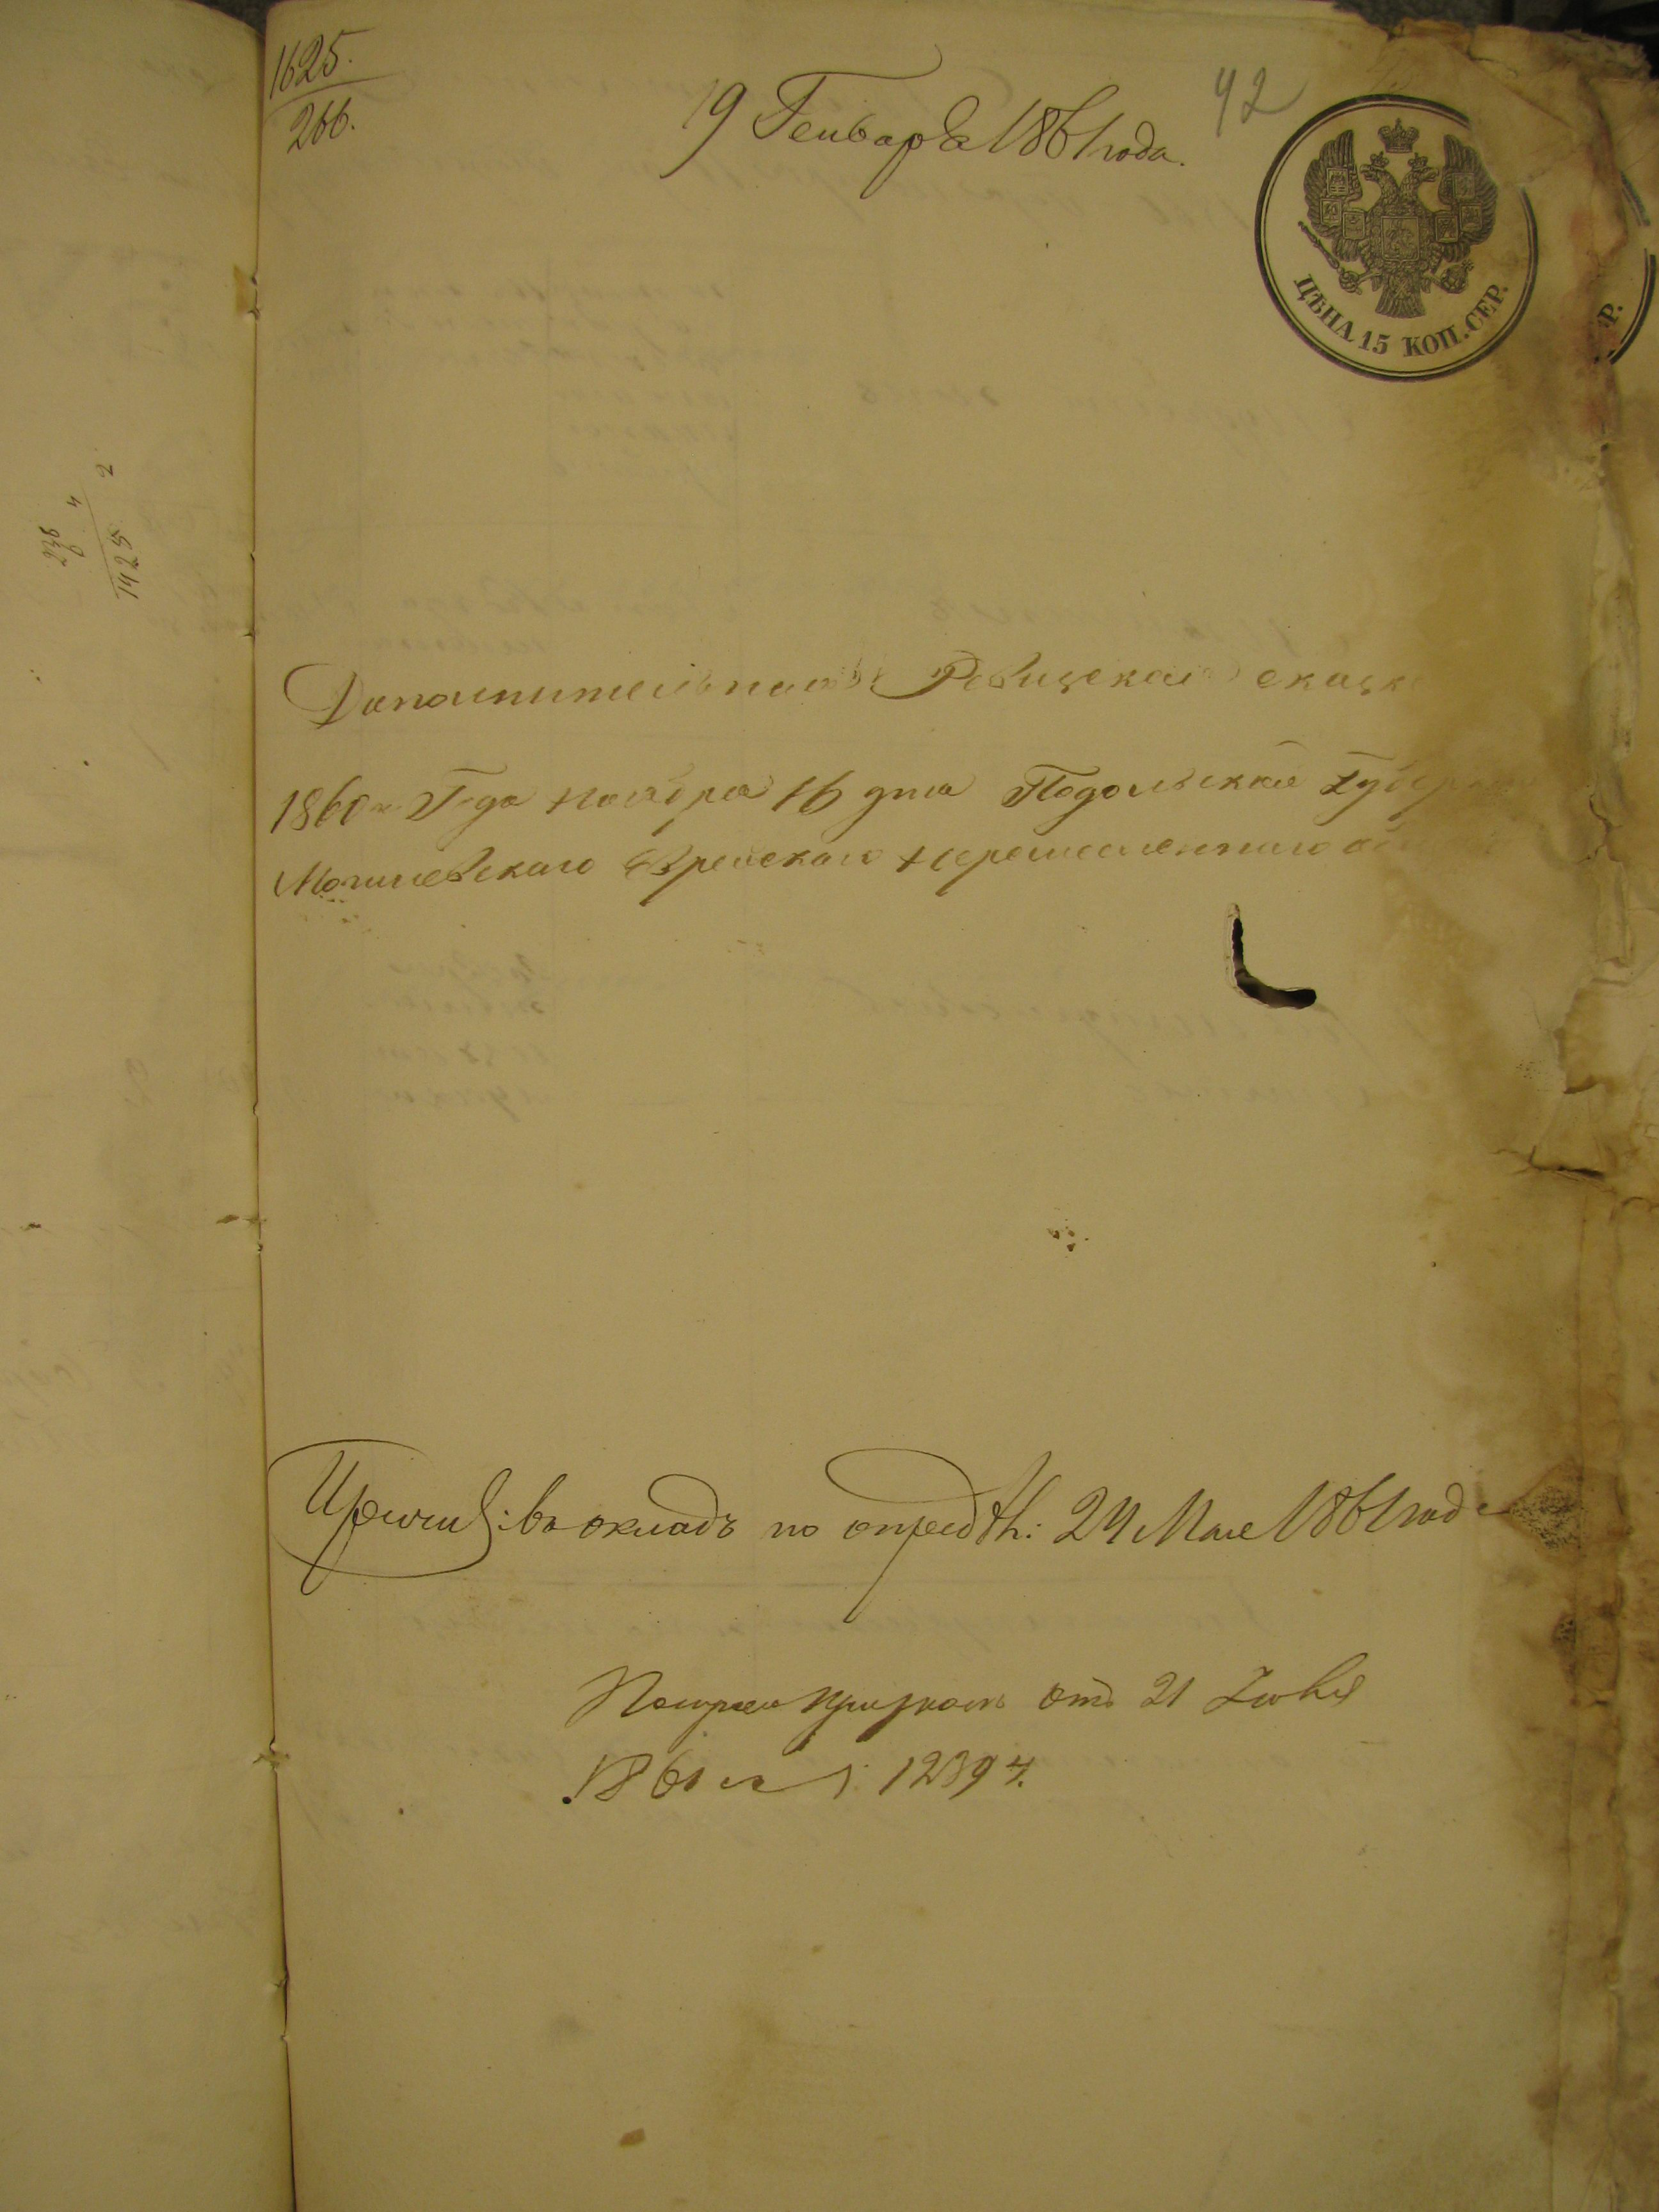 1625.
266.
19 Генваря 1861 года.
42
ЦѢНА 15 КОП. СЕР.
Р.
238
6 4
1425 2
Дополнительная Ревизская сказк
1860 Года ноября 16 дня Подольской Губер
Могилевскаго Еврейскаго
въ окладъ по опредѣл: 24 Мая 1861 год
отъ 21 Іюня
1861 12894.